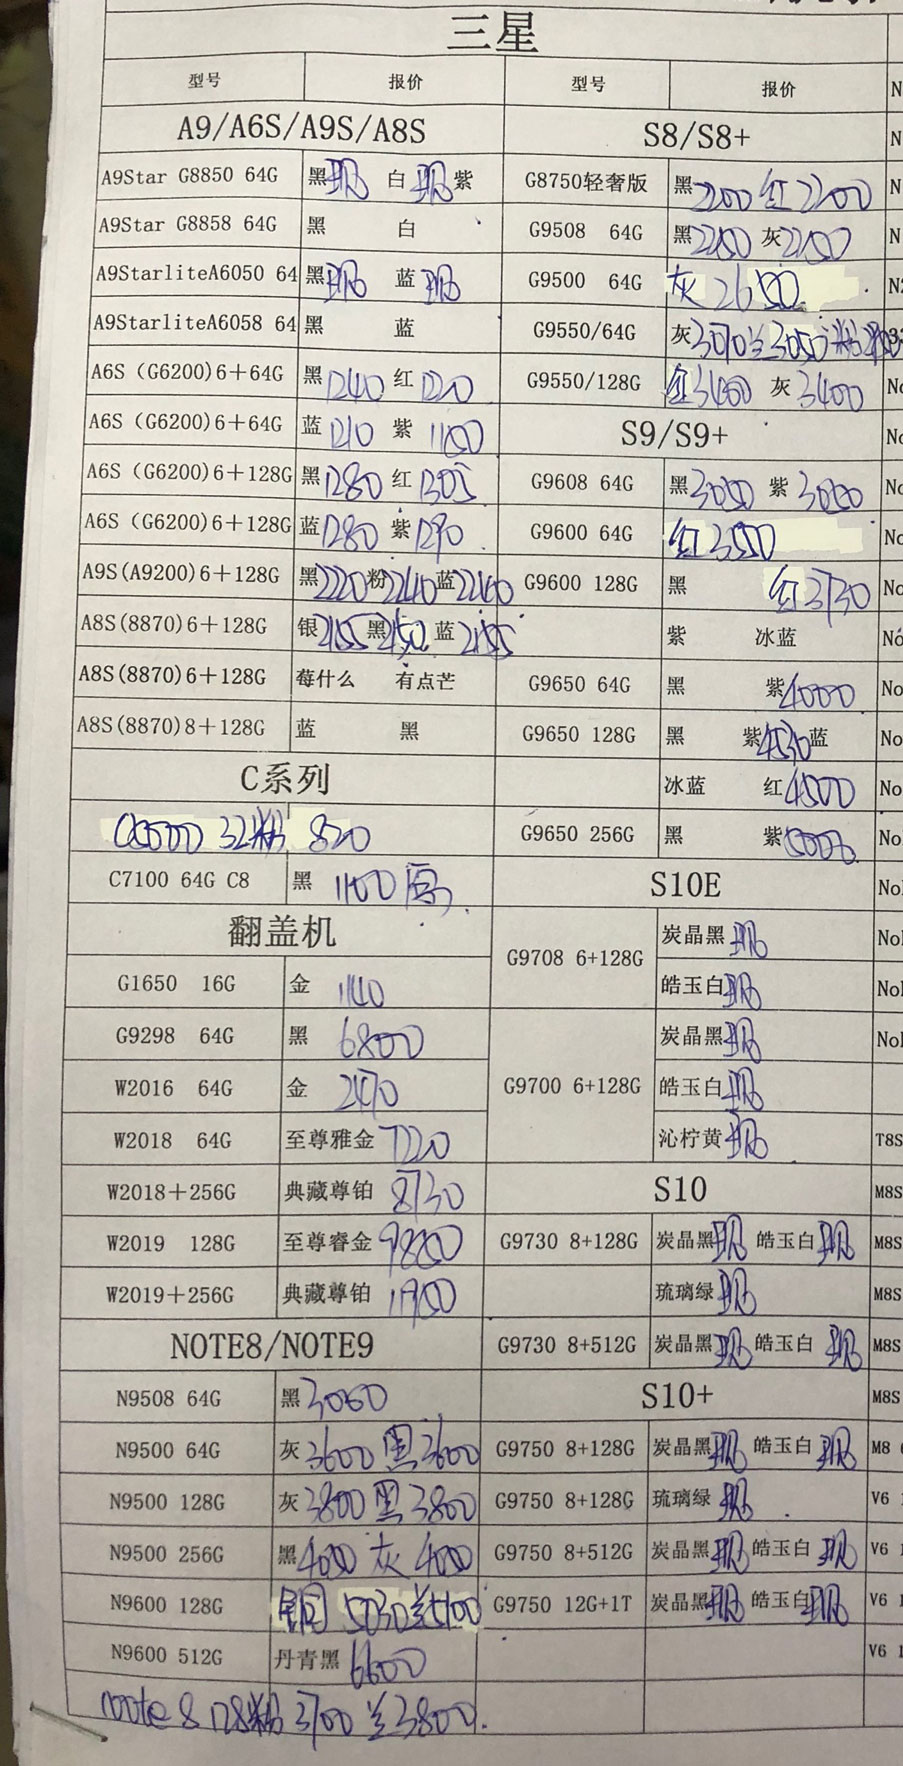 三星
型号 报价 型号 报价
A9/A6S/A9S/A8S S8/S8+
A9Star G8850 64G 黑现 白现紫 G8750轻奢版 黑2200红2200
A9Star G8858 64G 黑 白 G9508 64G 黑2250 灰2250
A9StarliteA6050 64 黑现 蓝现 G9500 64G 灰2650
A9StarliteA6058 64 黑 蓝 G9550/64G 灰3070兰3050粉
A6S (G6200)6+64G 黑1240红1220 G9550/128G 红3400 灰3400
A6S (G6200)6+64G 蓝1210 紫1180 S9/S9+
A6S (G6200)6+128G 黑1280红1305 G9608 64G 黑3050 紫3000
A6S (G6200)6+128G 蓝1280 紫1290 G9600 64G 红3550
A9S(A9200)6+128G 黑2220粉2240蓝2240 G9600 128G 黑 红3730
A8S(8870)6+128G 银2155黑2150蓝2155 紫 冰蓝
A8S(8870)6+128G 莓什么 有点芒 G9650 64G 黑 紫4000
A8S(8870)8+128G 蓝 黑 G9650 128G 黑 紫4530蓝
C系列 冰蓝 红4500
C5000 32粉 820 G9650 256G 黑 紫5000
C7100 64G C8 黑 1100 S10E
翻盖机 G9708 6+128G 炭晶黑现
G1650 16G 金 1140 皓玉白现
G9298 64G 黑 6800 G9700 6+128G 炭晶黑现
W2016 64G 金 2470 皓玉白现
W2018 64G 至尊雅金7220 沁柠黄现
W2018+256G 典藏尊铂 8730 S10
W2019 128G 至尊睿金9800 G9730 8+128G 炭晶黑现 皓玉白现
W2019+256G 典藏尊铂 11900 琉璃绿现
NOTE8/NOTE9 G9730 8+512G 炭晶黑现 皓玉白现
N9508 64G 黑3060 S10+
N9500 64G 灰3600黑3600 G9750 8+128G 炭晶黑现 皓玉白现
N9500 128G 灰3800黑3800 G9750 8+128G 琉璃绿现
N9500 256G 黑4000灰4000 G9750 8+512G 炭晶黑现 皓玉白现
N9600 128G 铜5030兰5100 G9750 12G+1T 炭晶黑现 皓玉白现
N9600 512G 丹青黑6600
note 8 128粉3700兰3800.